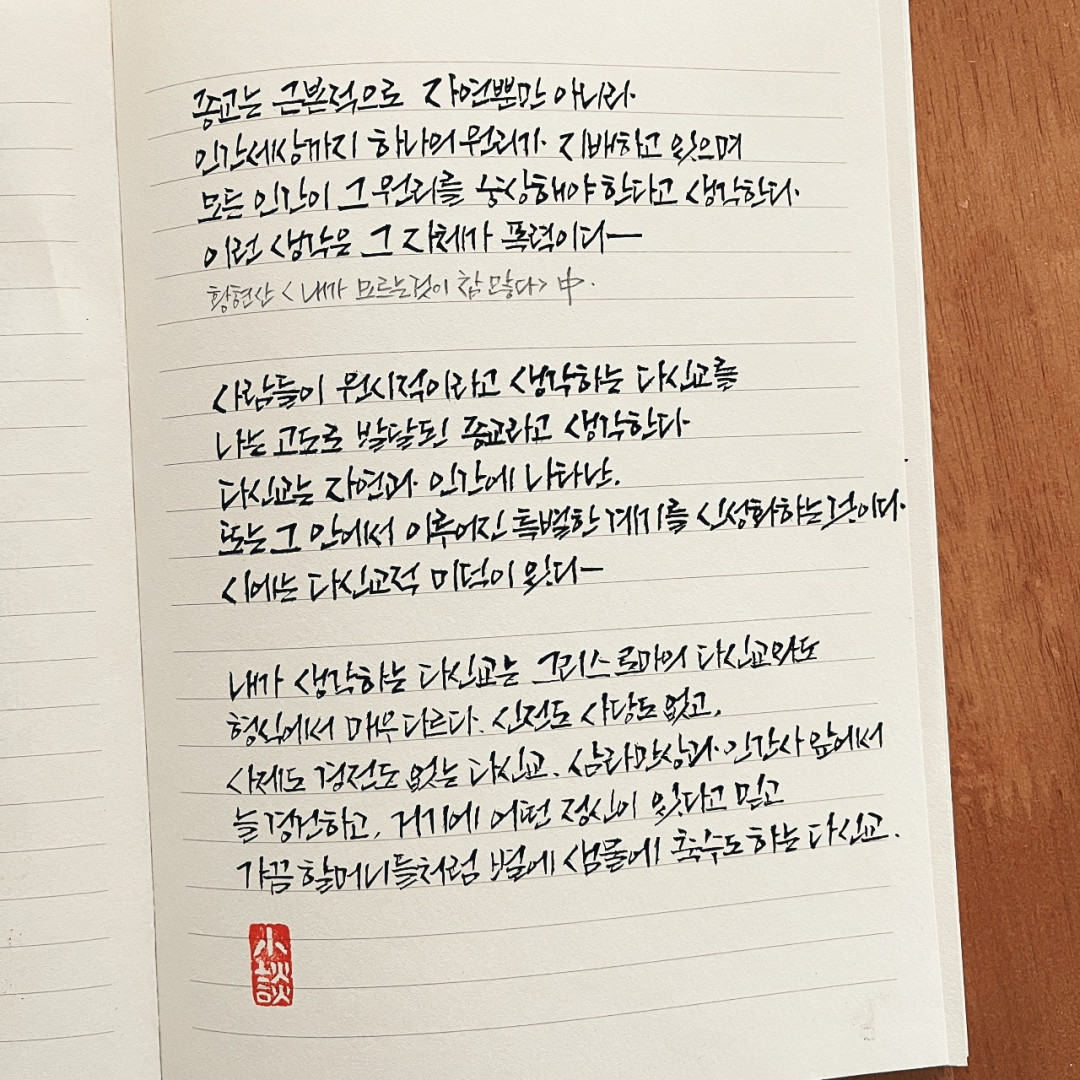 종교는 근본적으로 자연뿐만 아니라.
인간세상까지 하나의 원리가 지배하고 있으며
모든 인간이 그 원리를 숭상해야 한다고 생각한다.
이런 생각은 그 자체가 폭력이다—
황현산 <내가 모르는 것이 참 많다> 中.
사람들이 원시적이라고 생각하는 다신교를
나는 고도로 발달된 종교라고 생각한다.
다신교는 자연과 인간에 나타난,
또는 그 안에서 이루어진 특별한 계기를 신성화하는 것이다.
시에는 다신교적 미덕이 있다—
내가 생각하는 다신교는 그리스 로마의 다신교와도
형식에서 매우 다르다. 신전도 사당도 없고,
사제도 경전도 없는 다신교. 삼라만상과 인간사 앞에서
늘 경건하고, 거기에 어떤 정신이 있다고 믿고
가끔 할머니들처럼 별에 샘물에 축수도 하는 다신교.
小談